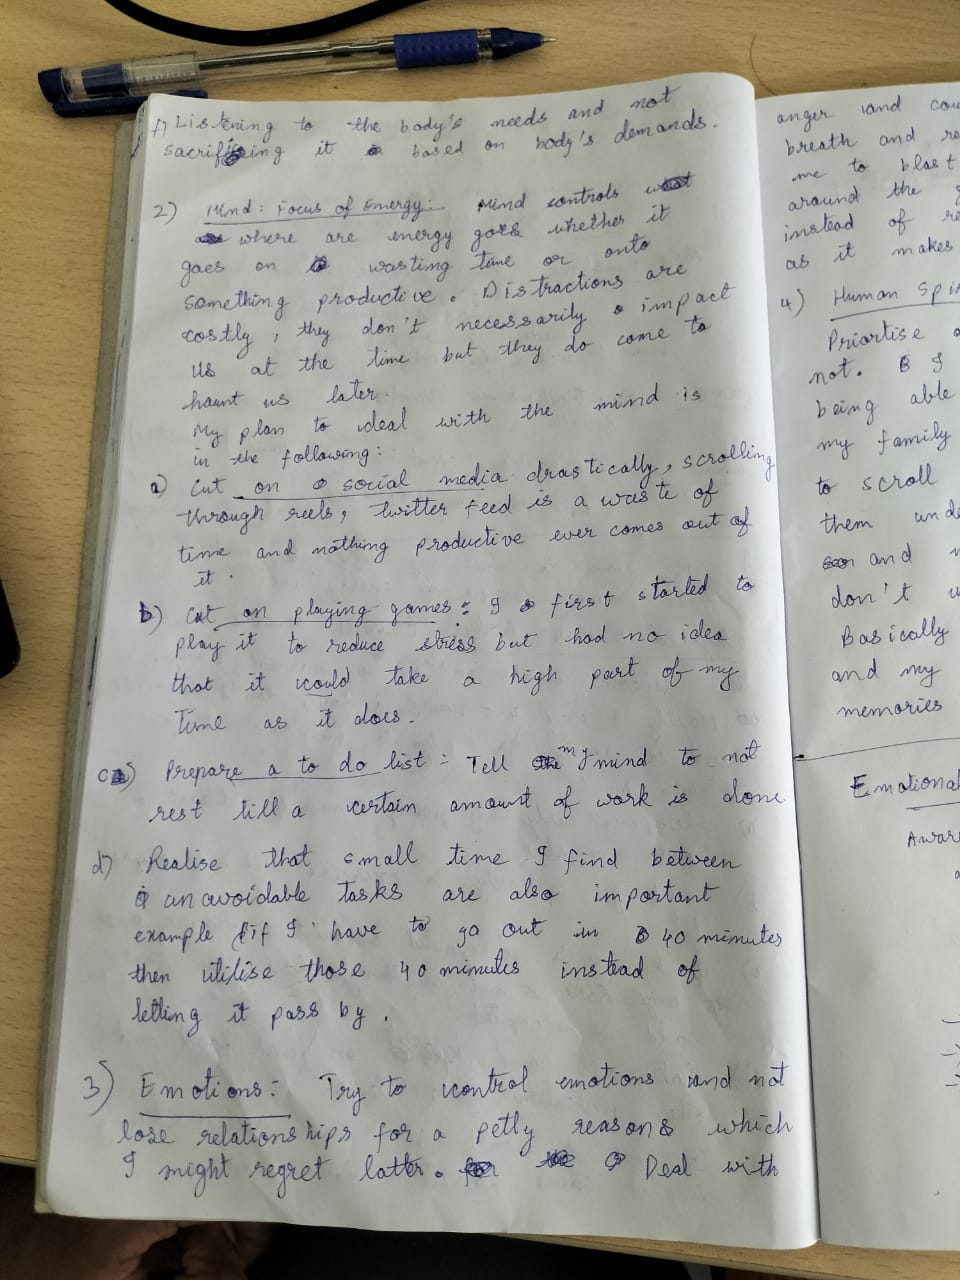 f) Listening to the body's needs and not
sacrificing it based on body's demands.
2) Mind: Focus of Energy: Mind controls
where are energy goes whether it
goes on wasting time or onto
something productive. Distractions are
costly, they don't necessarily impact
us at the time but they do come to
haunt us later.
My plan to deal with the mind is
in the following:
a) Cut on social media drastically, scrolling
through reels, twitter feed is a waste of
time and nothing productive ever comes out of
it.
b) Cut on playing games: I first started to
play it to reduce stress but had no idea
that it would take a high part of my
Time as it does.
c) Prepare a to do list: Tell my mind to not
rest till a certain amount of work is done
d) Realise that small time I find between
unavoidable tasks are also important
example if I have to go out in 40 minutes
then utilise those 40 minutes instead of
letting it pass by.
3) Emotions: Try to control emotions and not
lose relationships for a petty reasons which
I might regret latter. Deal with
anger and
breath and
me to blast
around the
instead of
as it makes
4) Human
Priortise
not. I
being able
my family
to scroll
them
and
don't
Basically
and my
memories